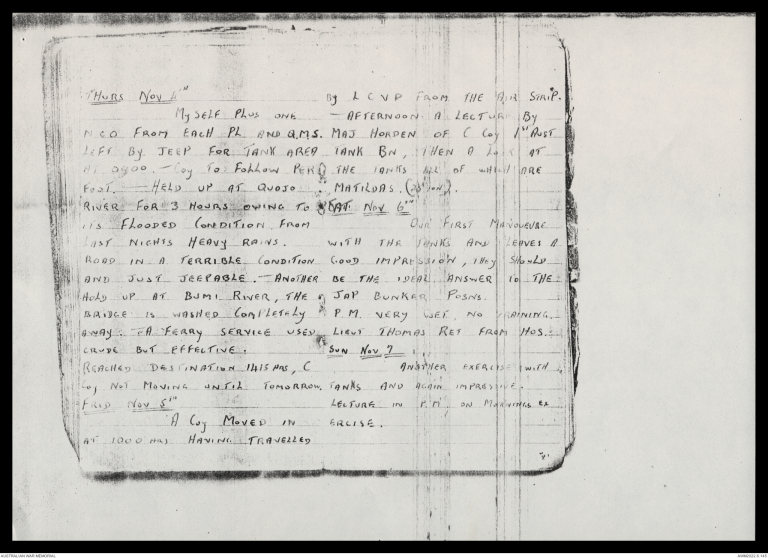 THURS NOV 4TH
MYSELF PLUS ONE
NCO FROM EACH PL AND Q.M.S.
LEFT BY JEEP FOR TANK AREA
AT 0900. — COY TO FOLLOW PER
FOOT. — HELD UP AT QUOJO
RIVER FOR 3 HOURS OWING TO
ITS FLOODED CONDITION FROM
LAST NIGHTS HEAVY RAINS.
ROAD IN A TERRIBLE CONDITION
AND JUST JEEPABLE. — ANOTHER
HOLD UP AT BUMI RIVER, THE
BRIDGE IS WASHED COMPLETELY
AWAY. — A FERRY SERVICE USED
CRUDE BUT EFFECTIVE.
REACHED DESTINATION 1415 HRS, C
COY NOT MOVING UNTIL TOMORROW.
FRID NOV 5TH
A COY MOVED IN
AT 1000 HRS HAVING TRAVELLED
BY LCVP FROM THE AIR STRIP.
— AFTERNOON A LECTURE BY
MAJ HORDEN OF C COY 1ST AUST
TANK BN, THEN A LOOK AT
THE TANKS ALL OF WHICH ARE
MATILDAS. (28 TON).
SAT NOV 6TH
OUR FIRST MANOUEUBE
WITH THE TANKS AND LEAVES A
GOOD IMPRESSION, THEY SHOULD
BE THE IDEAL ANSWER TO THE
JAP BUNKER POSNS.
P.M. VERY WET NO TRAINING.
LIEUT THOMAS RET FROM HOS.
SUN NOV 7
ANOTHER EXERCISE WITH
TANKS AND AGAIN IMPRESSIVE.
LECTURE IN P.M. ON MORNINGS EX
ERCISE.
AUSTRALIAN WAR MEMORIAL